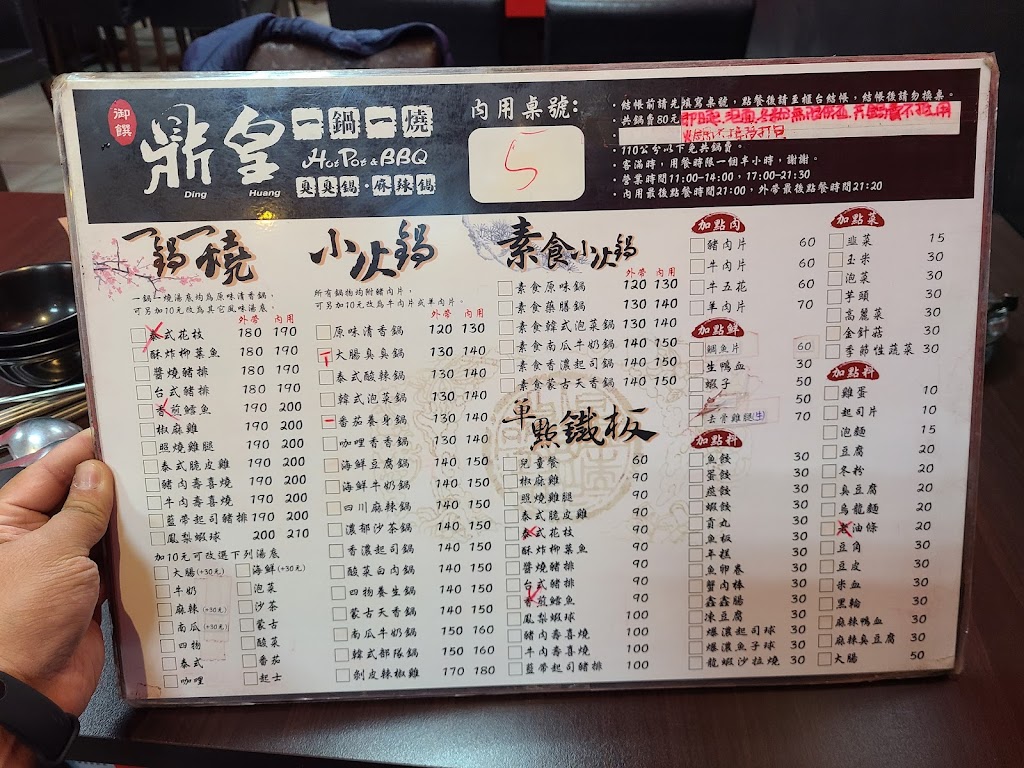 御饌
鼎皇
Ding Huang
一鍋一燒
Hot Pot & BBQ
臭臭鍋・麻辣鍋
內用桌號:
5
・結帳前請先填寫桌號,點餐後請至櫃台結帳,結帳後請勿換桌。
・共鍋費80元
・110公分以下免共鍋費。
・客滿時,用餐時限一個半小時,謝謝。
・營業時間11:00-14:00,17:00-21:30
・內用最後點餐時間21:00,外帶最後點餐時間21:20
一鍋一燒
一鍋一燒湯底均為原味清香鍋,
可另加10元改為其它風味湯底。
外帶 內用
泰式花枝 180 190
酥炸柳葉魚 180 190
醬燒豬排 180 190
台式豬排 180 190
香煎鱈魚 190 200
椒麻雞 190 200
照燒雞腿 190 200
泰式脆皮雞 190 200
豬肉壽喜燒 190 200
牛肉壽喜燒 190 200
藍帶起司豬排 190 200
鳳梨蝦球 200 210
加10元可改選下列湯底
大腸(+30元) 海鮮(+30元)
牛奶 泡菜
麻辣(+30元) 沙茶
南瓜(+30元) 蒙古
四物 酸菜
泰式 番茄
咖哩 起士
小火鍋
所有鍋物均附豬肉片,
可另加10元改為牛肉片或羊肉片。
外帶 內用
原味清香鍋 120 130
大腸臭臭鍋 130 140
泰式酸辣鍋 130 140
韓式泡菜鍋 130 140
番茄養身鍋 130 140
咖哩香香鍋 130 140
海鮮豆腐鍋 140 150
海鮮牛奶鍋 140 150
四川麻辣鍋 140 150
濃郁沙茶鍋 140 150
香濃起司鍋 140 150
酸菜白肉鍋 140 150
四物養生鍋 140 150
蒙古天香鍋 140 150
南瓜牛奶鍋 150 160
韓式部隊鍋 150 160
剝皮辣椒雞 170 180
素食小火鍋
外帶 內用
素食原味鍋 120 130
素食藥膳鍋 130 140
素食韓式泡菜鍋 130 140
素食南瓜牛奶鍋 140 150
素食香濃起司鍋 140 150
素食蒙古天香鍋 140 150
單點鐵板
兒童餐 60
椒麻雞 90
照燒雞腿 90
泰式脆皮雞 90
泰式花枝 90
酥炸柳葉魚 90
醬燒豬排 90
台式豬排 90
香煎鱈魚 90
鳳梨蝦球 100
豬肉壽喜燒 100
牛肉壽喜燒 100
藍帶起司豬排 100
加點肉
豬肉片 60
牛肉片 60
牛五花 60
羊肉片 70
加點鮮
鯛魚片 60
生鴨血 30
蝦子 50
50
去骨雞腿(生) 70
加點料
魚餃 30
蛋餃 30
燕餃 30
蝦餃 30
貢丸 30
魚板 30
年糕 30
魚卵卷 30
蟹肉棒 30
鑫鑫腸 30
凍豆腐 30
爆濃起司球 30
爆濃魚子球 30
龍蝦沙拉燒 30
加點菜
韭菜 15
玉米 30
泡菜 30
芋頭 30
高麗菜 30
金針菇 30
季節性蔬菜 30
加點料
雞蛋 10
起司片 10
泡麵 15
豆腐 20
冬粉 20
臭豆腐 20
烏龍麵 20
老油條 20
豆角 30
豆皮 30
米血 30
黑輪 30
麻辣鴨血 30
麻辣臭豆腐 30
大腸 50